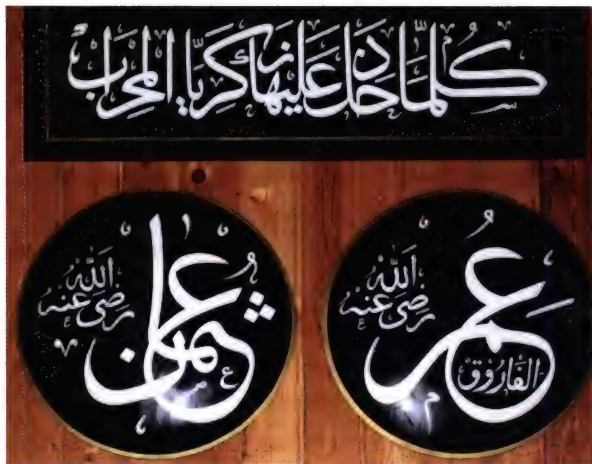 كُلَّمَا دَخَلَ عَلَيْهَا زَكَرِيَّا الْمِحْرَابَ
عُمَر
الفَارُوق
رَضِيَ اللّٰه عَنْه
عُثْمَان
رَضِيَ اللّٰه عَنْه